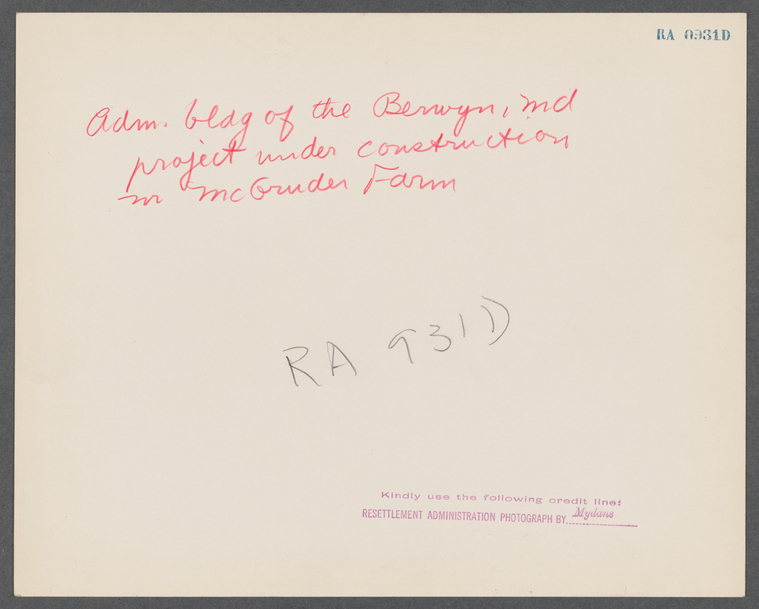 RA 0931D
Adm. bldg of the Berwyn, Md
project under construction
on McGruder Farm
RA 931D
Kindly use the following credit line:
RESETTLEMENT ADMINISTRATION PHOTOGRAPH BY Mydans